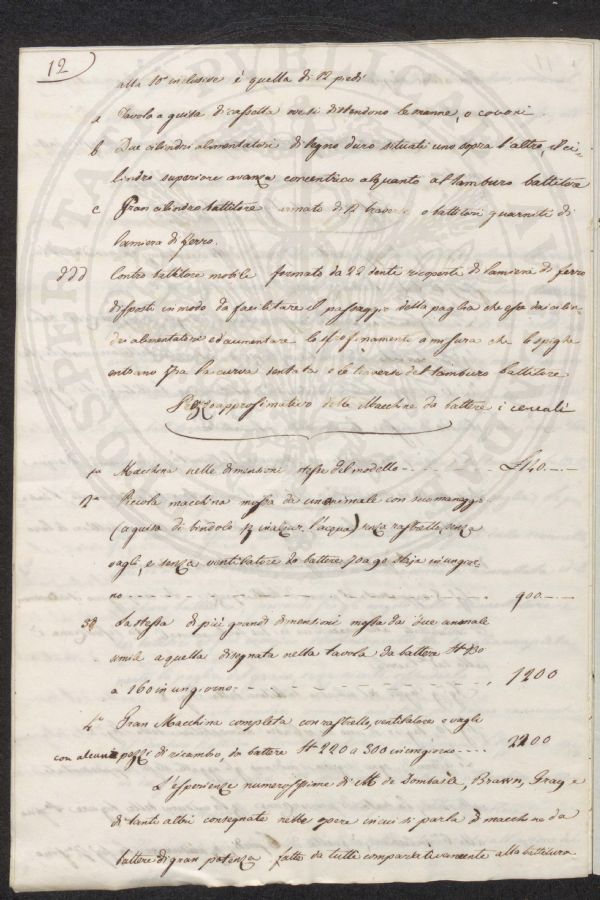 12
alla 10ª inclusive è quella di 12 piedi
a Tavola a guisa di cassetta ove si distendono le manne, o covoni
b Due cilindri alimentatori di legno duro situati uno sopra l'altro, il ci-
lindro superiore avanza concentrico alquanto al tamburo battitore
c Gran cilindro battitore armato di 12 traverse o battitori guarniti di
lamiera di ferro.
ddd Contro battitore mobile formato da 22 dente ricoperte di lamiera di ferro
disposti in modo da facilitare il passaggio della paglia che esce dai cilin-
dri alimentatori ed aumentare lo strofinamento a misura che le spighe
entrano fra la curva dentata e le traverse del tamburo battitore
Prezzo approssimativo delle Macchine da battere i cereali
1ª Macchina nelle dimensioni stesse del modello - - - - £ 140. - . -
2ª Piccola macchina mossa da un animale con suo maneggio
(a guisa di bindolo p inalzar l'acqua) senza rastrello, senza
vagli, e senza ventilatore da battere 70 a 90 staja in un gior-
no - - - - 900. - . -
3ª La stessa di più grandi dimensioni mossa da due animale
simile a quella disegnata nella tavola da battere St 130
a 160 in un giorno - - - - 1200
4ª Gran Macchina completa con rastrello, ventilatore e vagli
con alcuni pezzi di ricambo, da battere St 220 a 300 in un giorno - - - - 2200
L'esperienze numerosissime di M. de Dombasle, Brawn, Gray e
di tanti altri consegnate nelle opere in cui si parla di macchine da
battere di gran potenza fatte da tutte comparativamente alla battitura